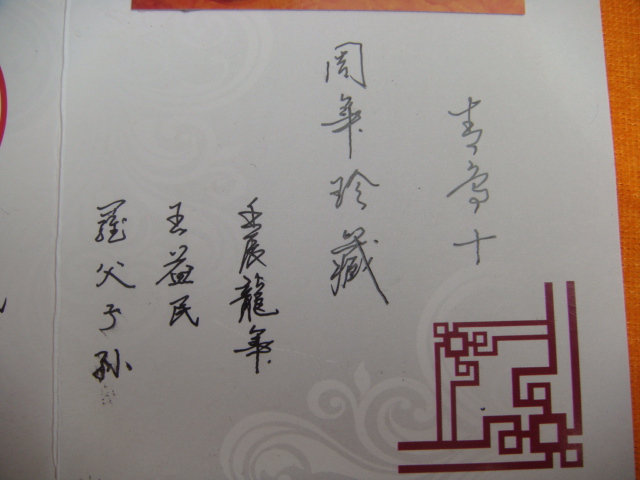 青鸟十
周年珍藏
壬辰龍年
王益民
羅父子孙